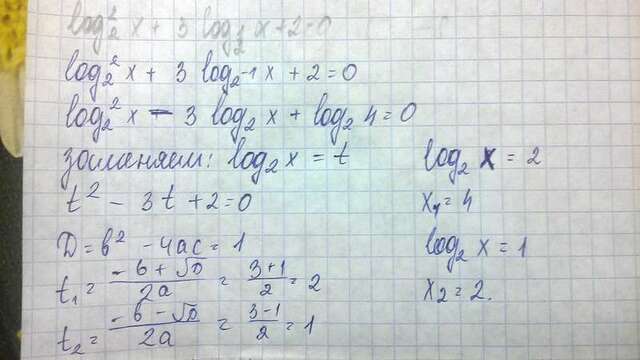 log₂² x + 3 log_{1/2} x + 2 = 0
log₂² x + 3 log₂-1 x + 2 = 0
log₂² x - 3 log₂ x + log₂ 4 = 0
заменяем: log₂ x = t
t² - 3t + 2 = 0
D = b² - 4ac = 1
t₁ = (-b + √D)/2a = (3+1)/2 = 2
t₂ = (-b - √D)/2a = (3-1)/2 = 1
log₂ x = 2
x₁ = 4
log₂ x = 1
x₂ = 2.